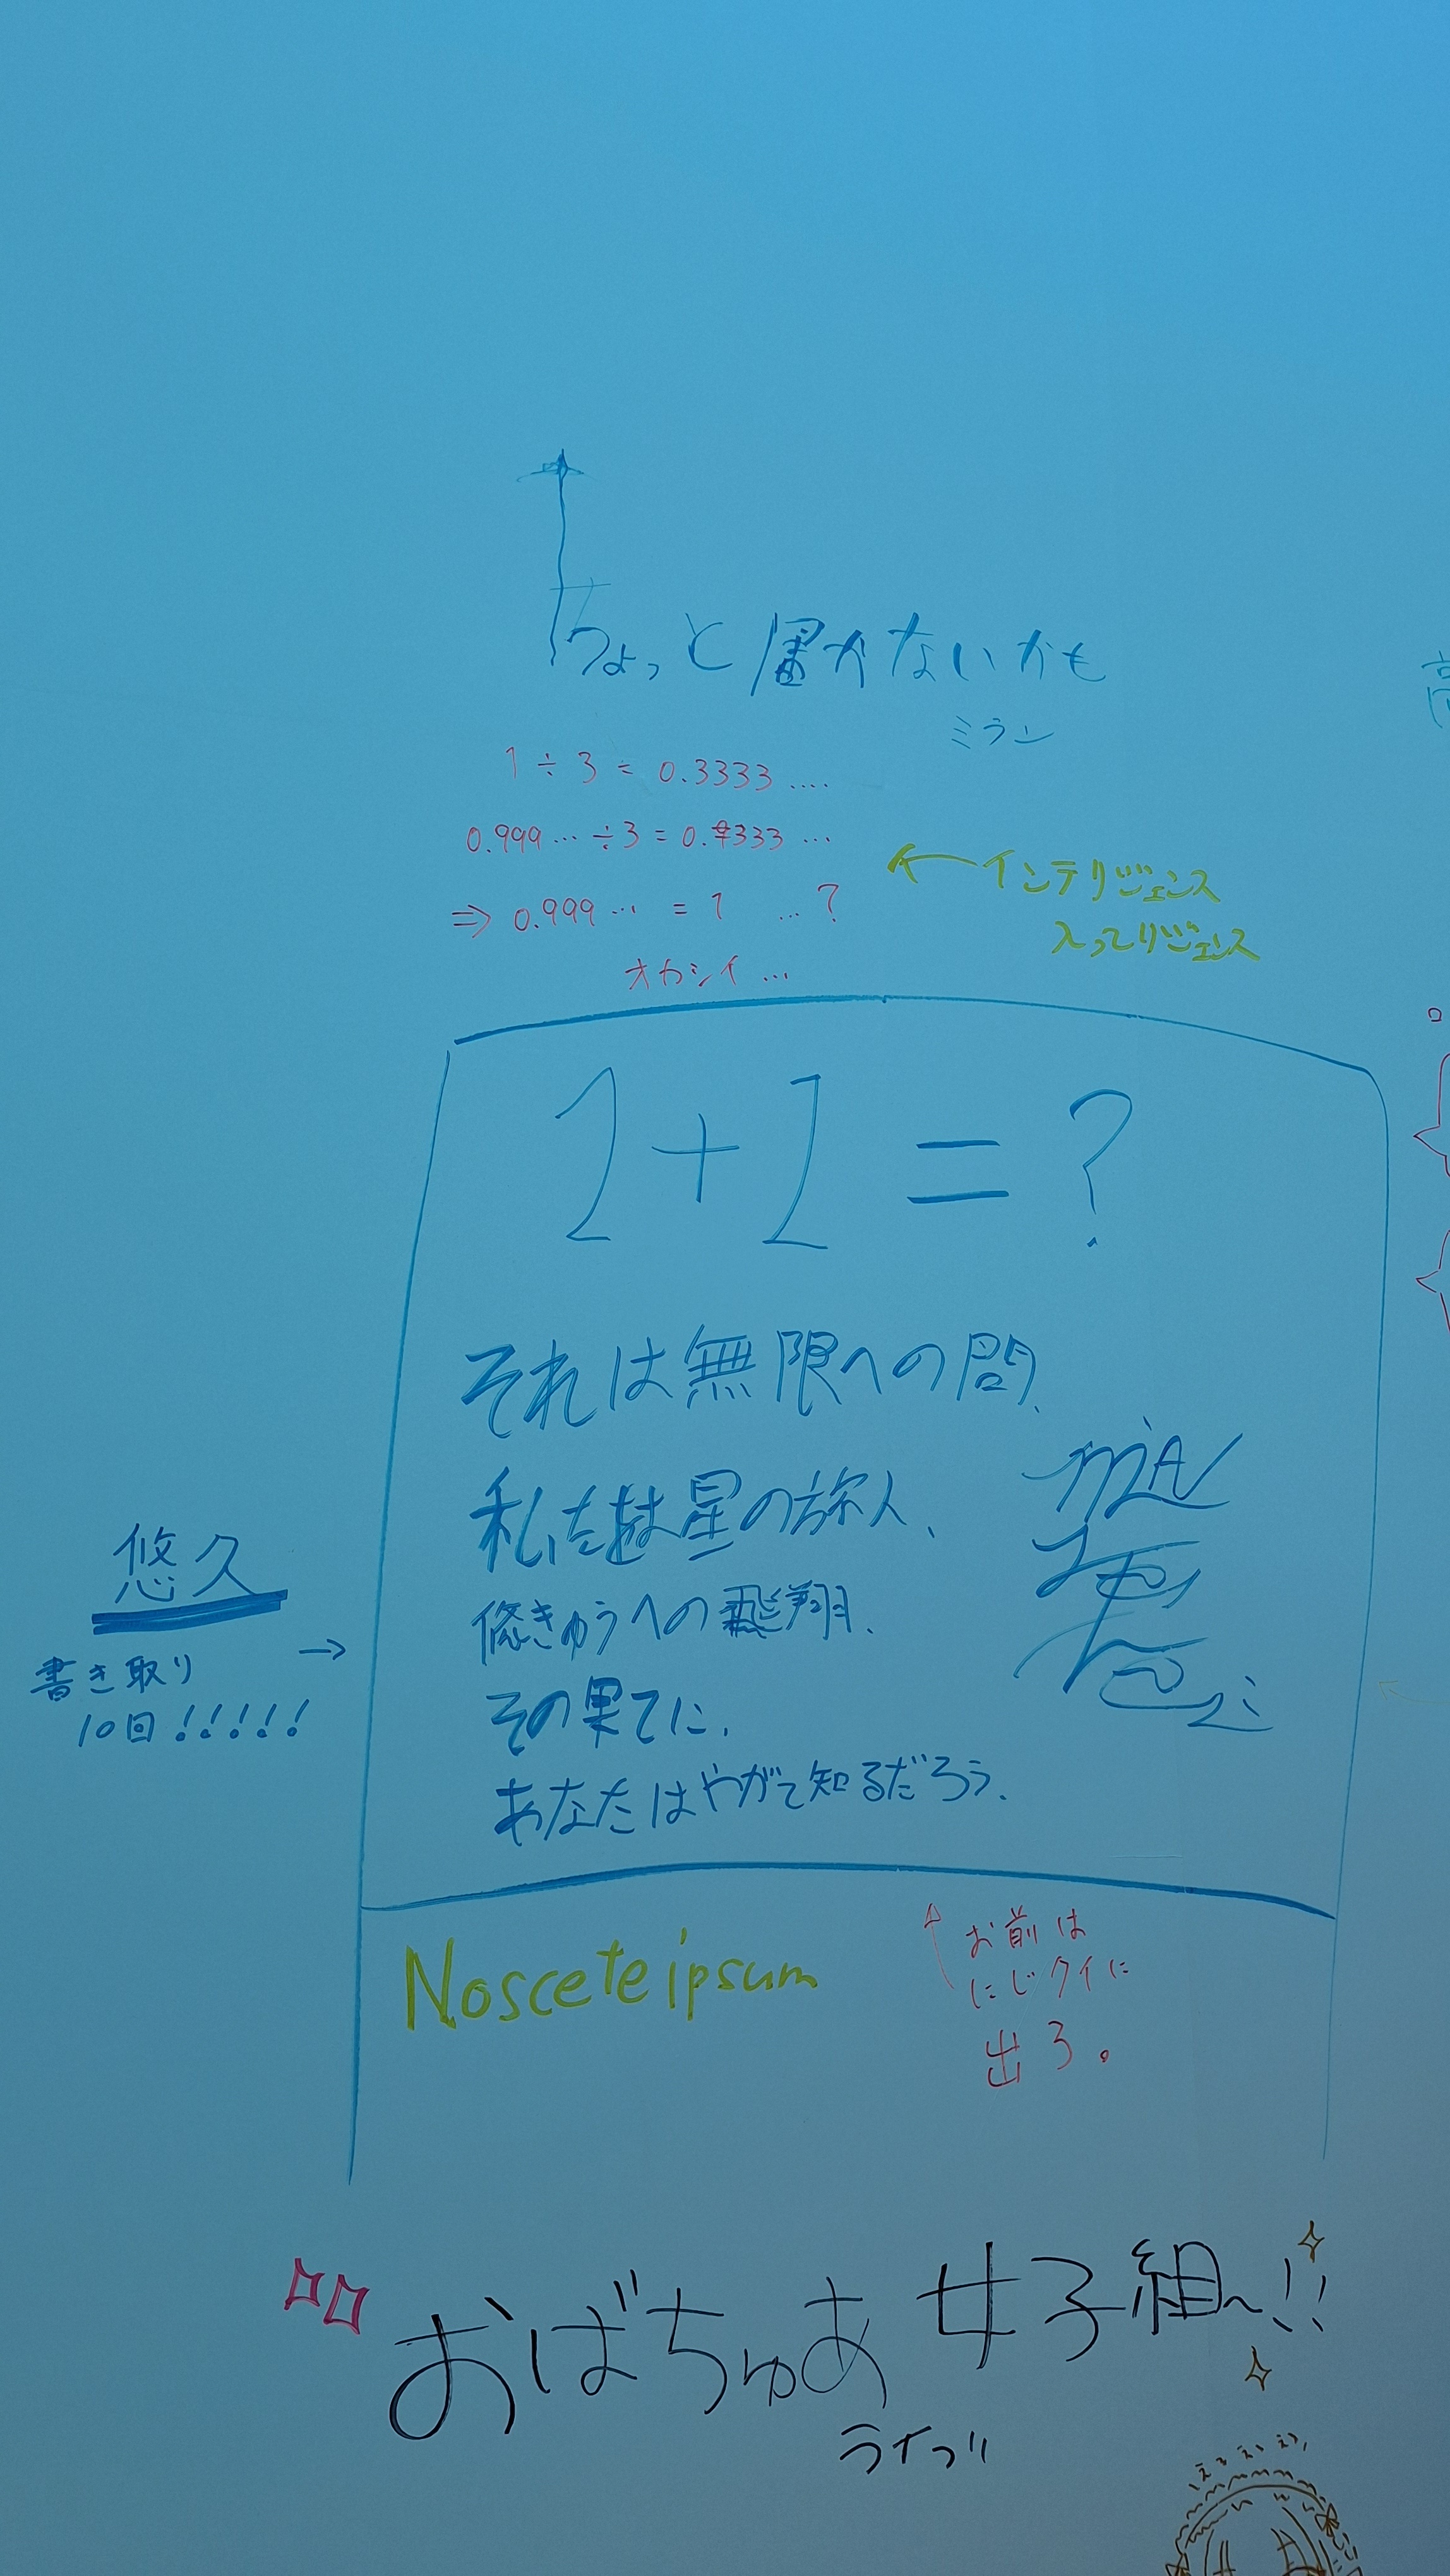 ちょっと届かないかも
ミラン
1÷3=0.3333....
0.999…÷3=0.3333…
⇒0.999…=1 …?
オカシイ…
←インテリジェンス
入ってリジェンス
1+1=?
それは無限への問、
私たちは星の旅人、
悠きゅうへの飛翔、
その果てに、
あなたはやがて知るだろう、
悠久
書き取り→
10回!!!!!
Nosce te ipsum
お前は
にじクイに
出ろ。
おばちゅあ女子組~!!
ライブ!!